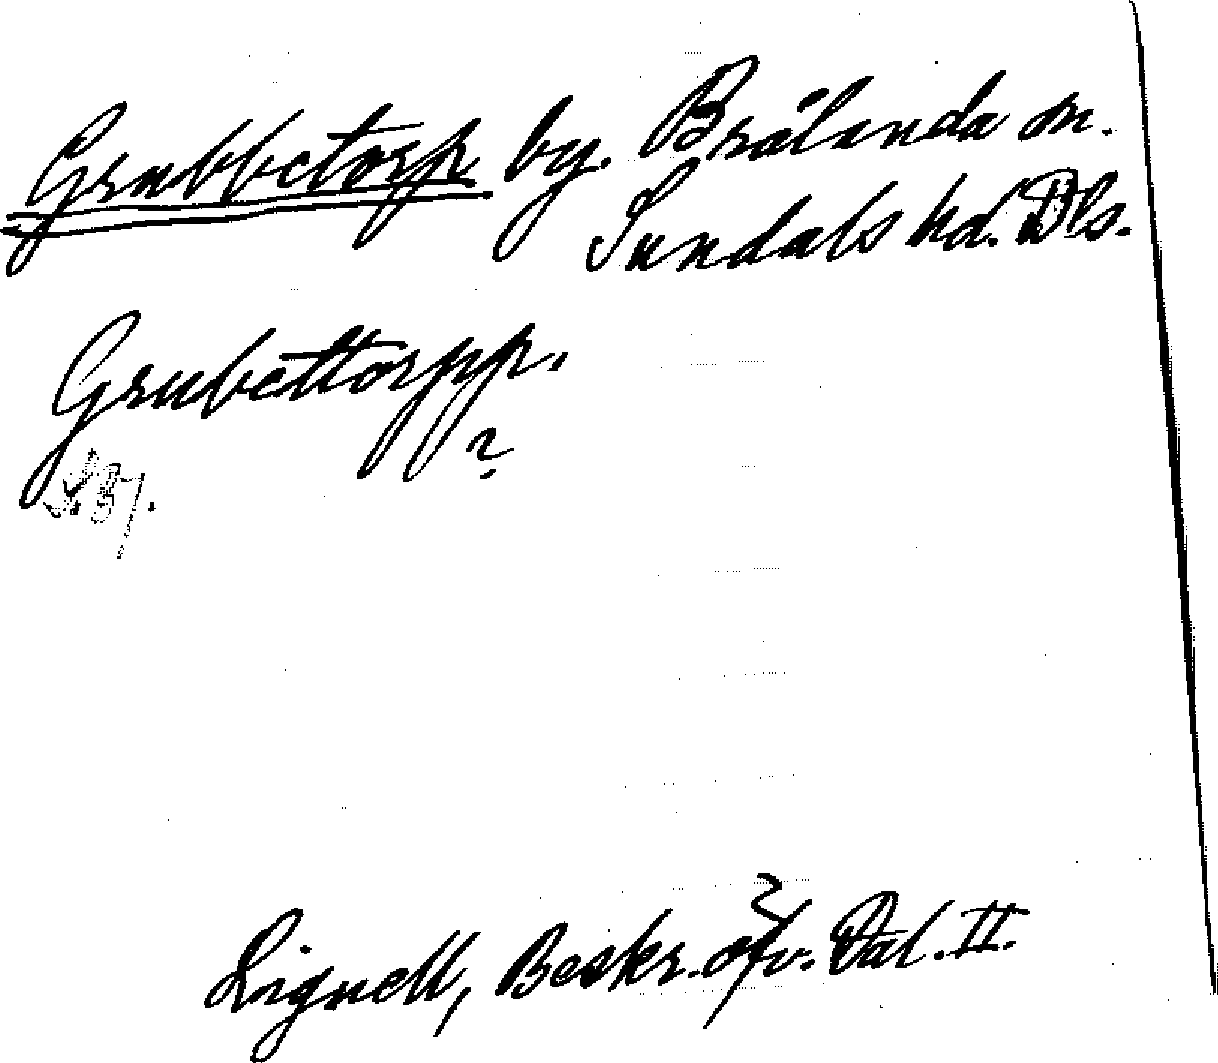 Grubbetorp by. Brålanda sn.
Sundals hd. Dls.
Grubettorpp.
?
s. 37.
Lignell, Beskr. öfv. Dal. II.